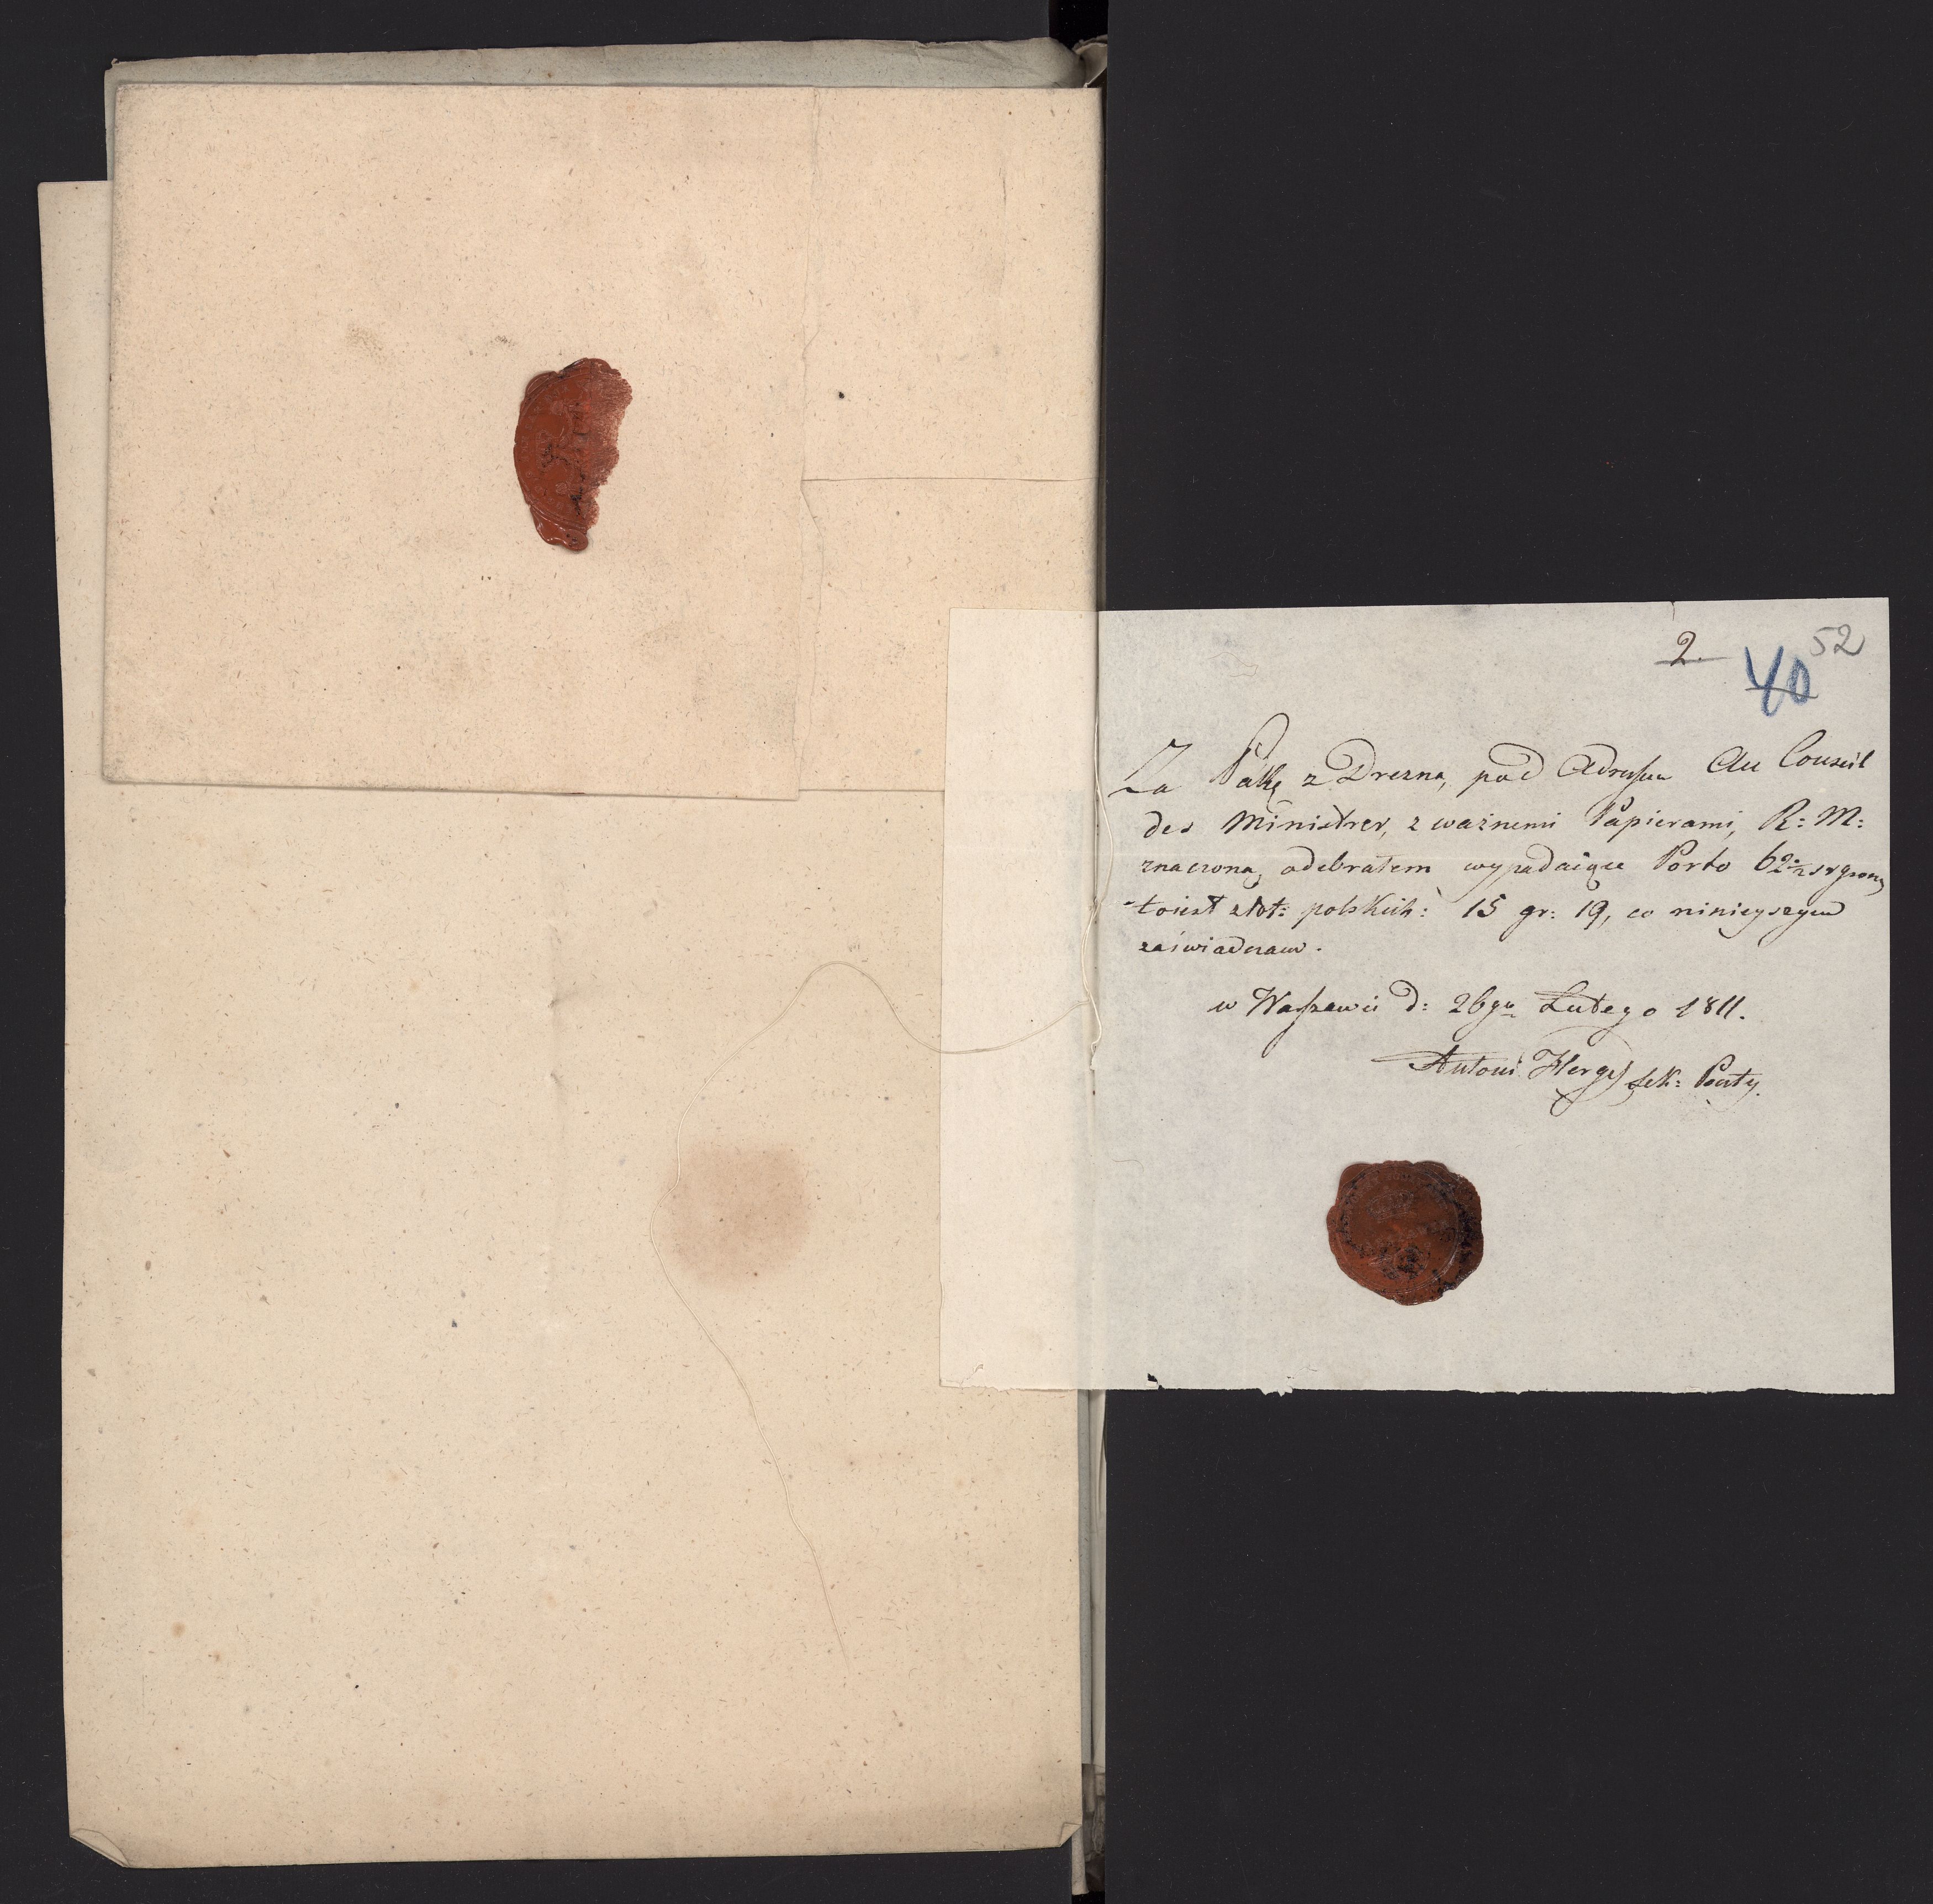 2.
40
52
Za Pakę z Drezna, pod Adressem Au Conseil
des Ministres, z ważnemi Papierami, R: M:
znaczoną, odebrałem wypadaiące Porto 62 1/2 srgroszy
toiest złot: polskich: 15 gr: 19, co ninieyszym
zaświadczam.
w Warszawie d: 26go Lutego 1811.
Antoni sek: Poczty.